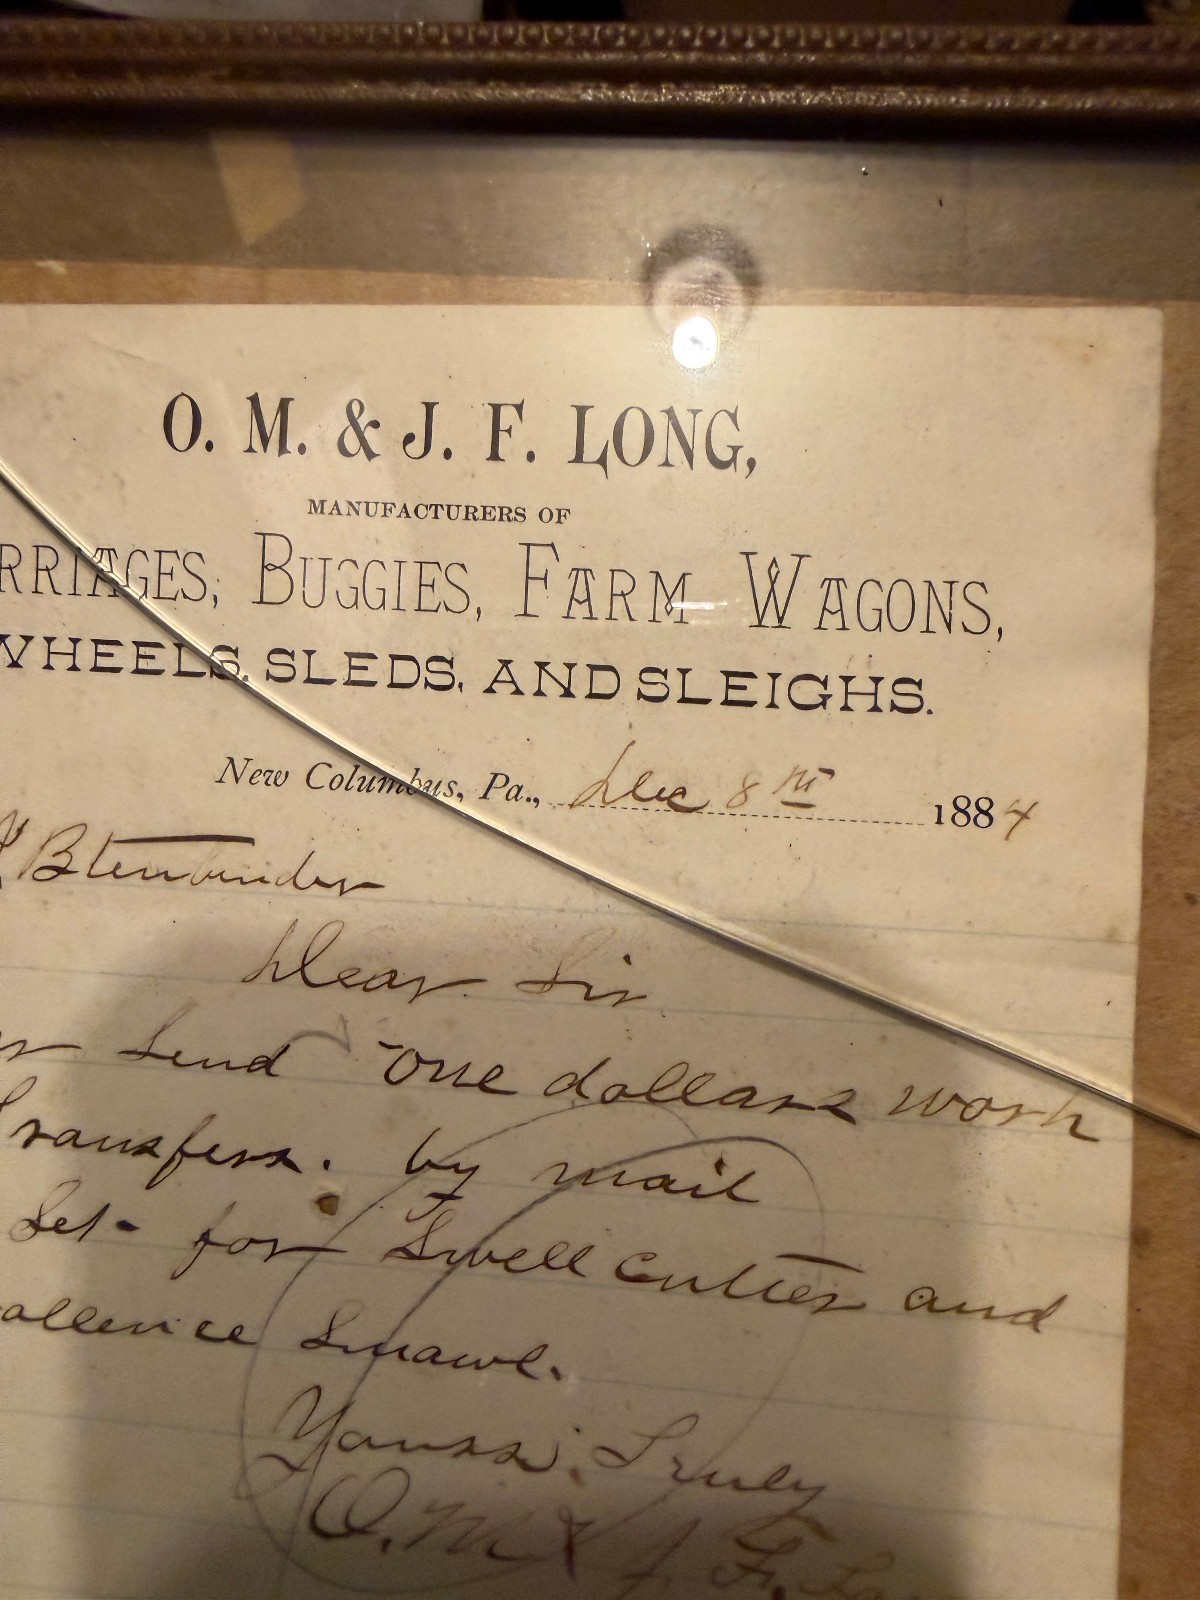 O. M. & J. F. LONG,
MANUFACTURERS OF
RRIAGES, BUGGIES, FARM WAGONS,
WHEELS, SLEDS, AND SLEIGHS.
New Columbus, Pa., Dec 8th 1884
Dear Sir
send one dollars worth
Transfers. by mail
Set for Swell cutter and
Yours Truly
O. M. & J. F. Lo